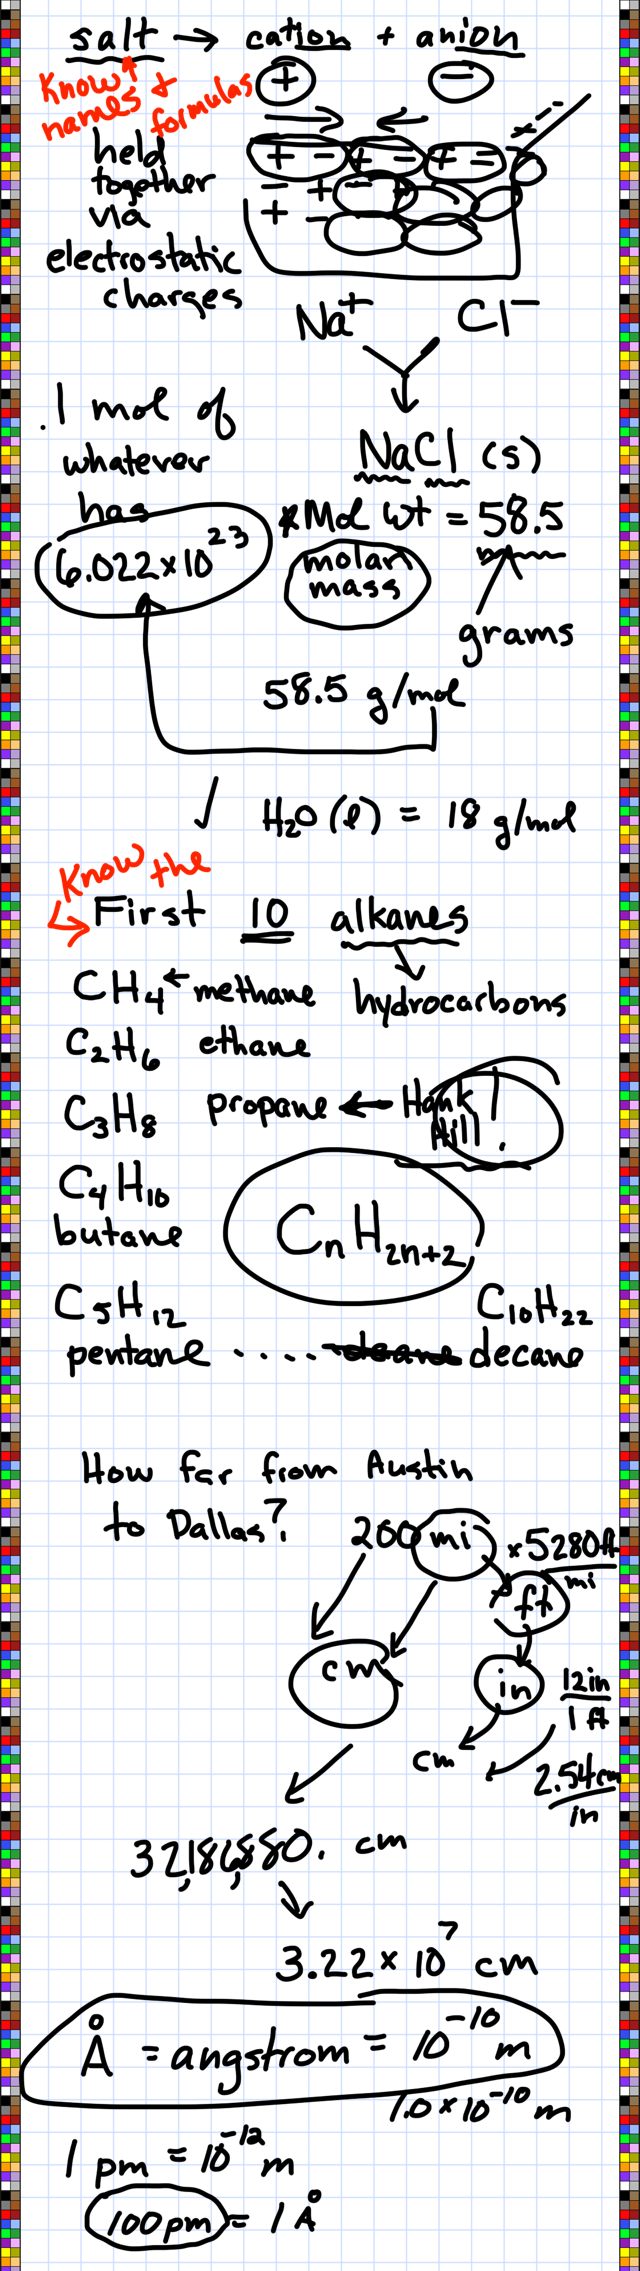 salt → cation + anion
Know names & formulas
+ −
held together via electrostatic charges
+ − + − + =
− + − +
+ −
Na⁺ Cl⁻
NaCl (s)
.1 mol of
whatever
has
6.022×10²³
*Mol wt = 58.5
molar mass
grams
58.5 g/mol
√ H₂O (l) = 18 g/mol
Know the
First 10 alkanes
CH₄ ← methane hydrocarbons
C₂H₆ ethane
C₃H₈ propane ← Hank Hill!
C₄H₁₀
butane
CₙH₂ₙ₊₂
C₅H₁₂ C₁₀H₂₂
pentane .... decane
How far from Austin
to Dallas? 200 mi × 5280 ft/mi
ft
cm in 12 in/1 ft
cm 2.54 cm/in
32,186,880. cm
3.22 × 10⁷ cm
Å = angstrom = 10⁻¹⁰ m
1.0 × 10⁻¹⁰ m
1 pm = 10⁻¹² m
100 pm = 1 Å